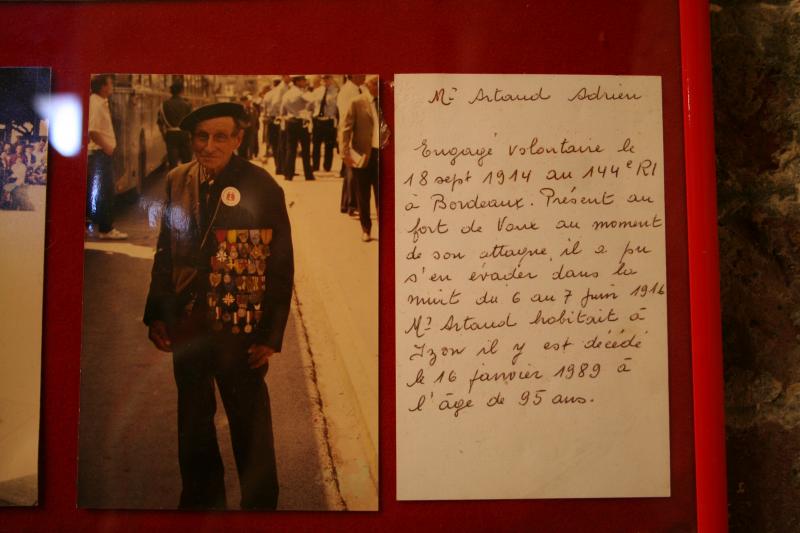 Mr Artaud Adrien
Engagé volontaire le
18 sept 1914 au 144e RI
à Bordeaux. Présent au
fort de Vaux au moment
de son attaque, il a pu
s'en évader dans la
nuit du 6 au 7 juin 1916
Mr Artaud habitait à
Izon il y est décédé
le 16 janvier 1989 à
l'âge de 95 ans.